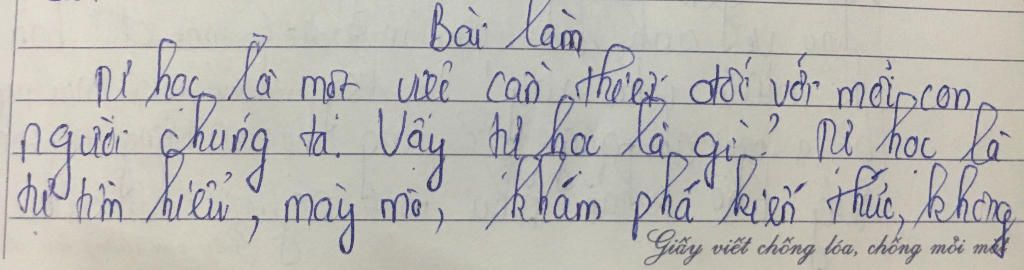 Bài làm
Tự học là một việc cần thiết đối với mỗi con
người chúng ta. Vậy tự học là gì? Tự học là
tự tìm hiểu, mày mò, khám phá kiến thức, không
Giấy viết chống lóa, chống mỏi mắt